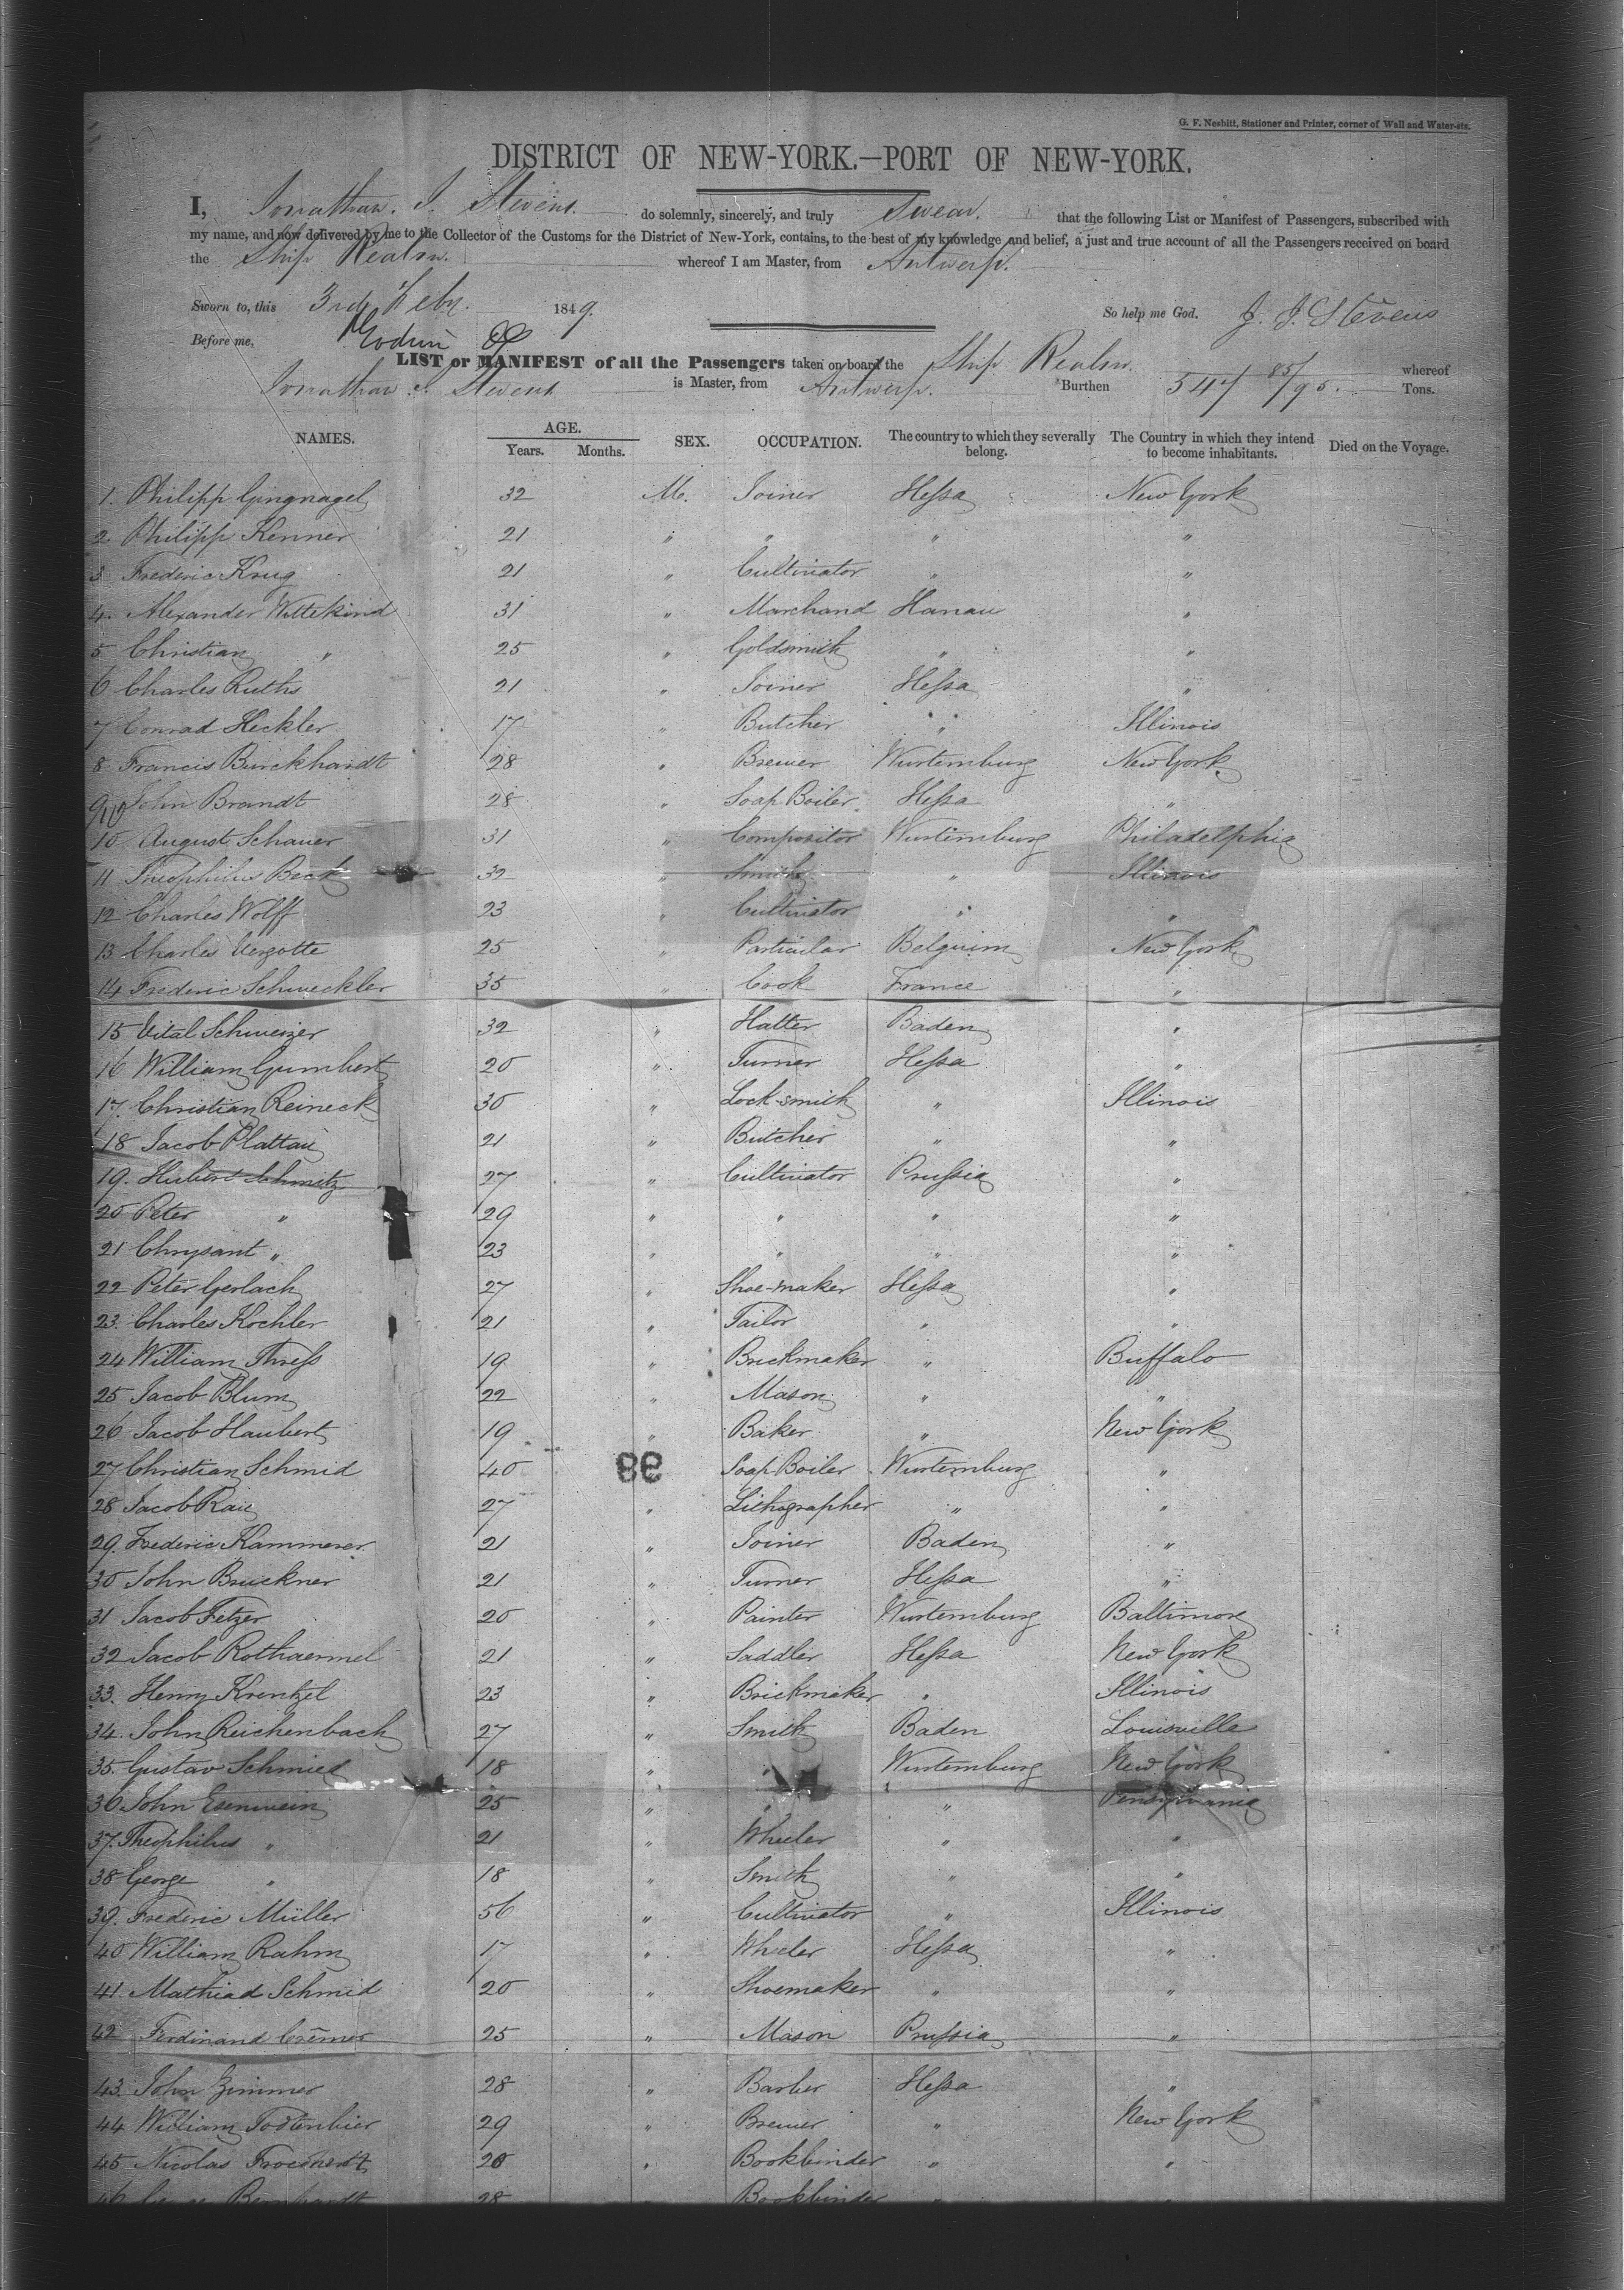 G. F. Nesbitt, Stationer and Printer, corner of Wall and Water-sts.
DISTRICT OF NEW-YORK.—PORT OF NEW-YORK.
I, Jonathan. I. Stevens. do solemnly, sincerely, and truly Swear. that the following List or Manifest of Passengers, subscribed with
my name, and now delivered by me to the Collector of the Customs for the District of New-York, contains, to the best of my knowledge and belief, a just and true account of all the Passengers received on board
the Ship Realm. whereof I am Master, from Antwerp.
Sworn to, this 3rd Feby. 1849. So help me God. J. I. Stevens
Before me,
LIST or MANIFEST of all the Passengers taken on board the Ship Realm. whereof
Jonathan I. Stevens is Master, from Antwerp. Burthen 547 85/95. Tons.
NAMES. AGE. SEX. OCCUPATION. The country to which they severally belong. The Country in which they intend to become inhabitants. Died on the Voyage.
Years. Months.
1. Philipp Gingnagel 32 M. Joiner Hessa New York
2 Philipp Kenner 21 " " " "
3 Frederic Krug 21 " Cultivator " "
4. Alexander Wittekind 31 " Marchand Hanau "
5 Christian " 25 " Goldsmith " "
6 Charles Ruths 21 " Joiner Hessa "
7 Conrad Heckler 17 " Butcher " Illinois
8 Francis Burckhardt 28 " Brewer Wurtemburg New York
9 John Brandt 28 " Soap Boiler Hessa "
10 August Schauer 31 " Compositor Wurtemburg Philadelphia
11 Theophilus Beck 32 " Smith " Illinois
12 Charles Wolff 23 " Cultivator " "
13 Charles Vergotte 25 " Particular Belguim New York
14 Frederic Schweckler 35 " Cook France "
15 Vital Schweizer 32 " Hatter Baden "
16 William Gumbert 20 " Turner Hessa "
17. Christian Reineck 30 " Lock-smith " Illinois
18 Jacob Plattau 21 " Butcher " "
19. Hubert Schmitz 27 " Cultivator Prussia "
20 Peter " 29 " " " "
21 Chrysant " 23 " " " "
22 Peter Gerlach 27 " Shoe-maker Hessa "
23. Charles Kochler 21 " Tailor " "
24 William Thress 19 " Brickmaker " Buffalo
25 Jacob Blum 22 " Mason " "
26 Jacob Haubert 19 " Baker " New York
27 Christian Schmid 40 " Soap Boiler Wurtemburg "
28 Jacob Rau 27 " Lithographer " "
29. Frederic Kammerer 21 " Joiner Baden "
30 John Bruckner 21 " Turner Hessa "
31 Jacob Fetzer 20 " Painter Wurtemburg Baltimore
32 Jacob Rothaermel 21 " Saddler Hessa New York
33. Henry Krentzel 23 " Brickmaker " Illinois
34. John Reichenbach 27 " Smith Baden Louisville
35. Gustav Schmied 18 " " Wurtemburg New York
36 John Esenwein 25 " " " Pensylvania
37. Theophilus " 21 " Wheeler " "
38 George " 18 " Smith " "
39. Frederic Müller 56 " Cultivator " Illinois
40 William Rahm 17 " Wheeler Hessa "
41 Mathiad Schmid 20 " Shoemaker " "
42 Ferdinand Crēmer 25 " Mason Prussia "
43. John Zimmer 28 " Barber Hessa "
44 William Todtenbier 29 " Brewer " New York
45 Nicolas 20 " Bookbinder " "
46 George Bernhardt 28 Bookbinder